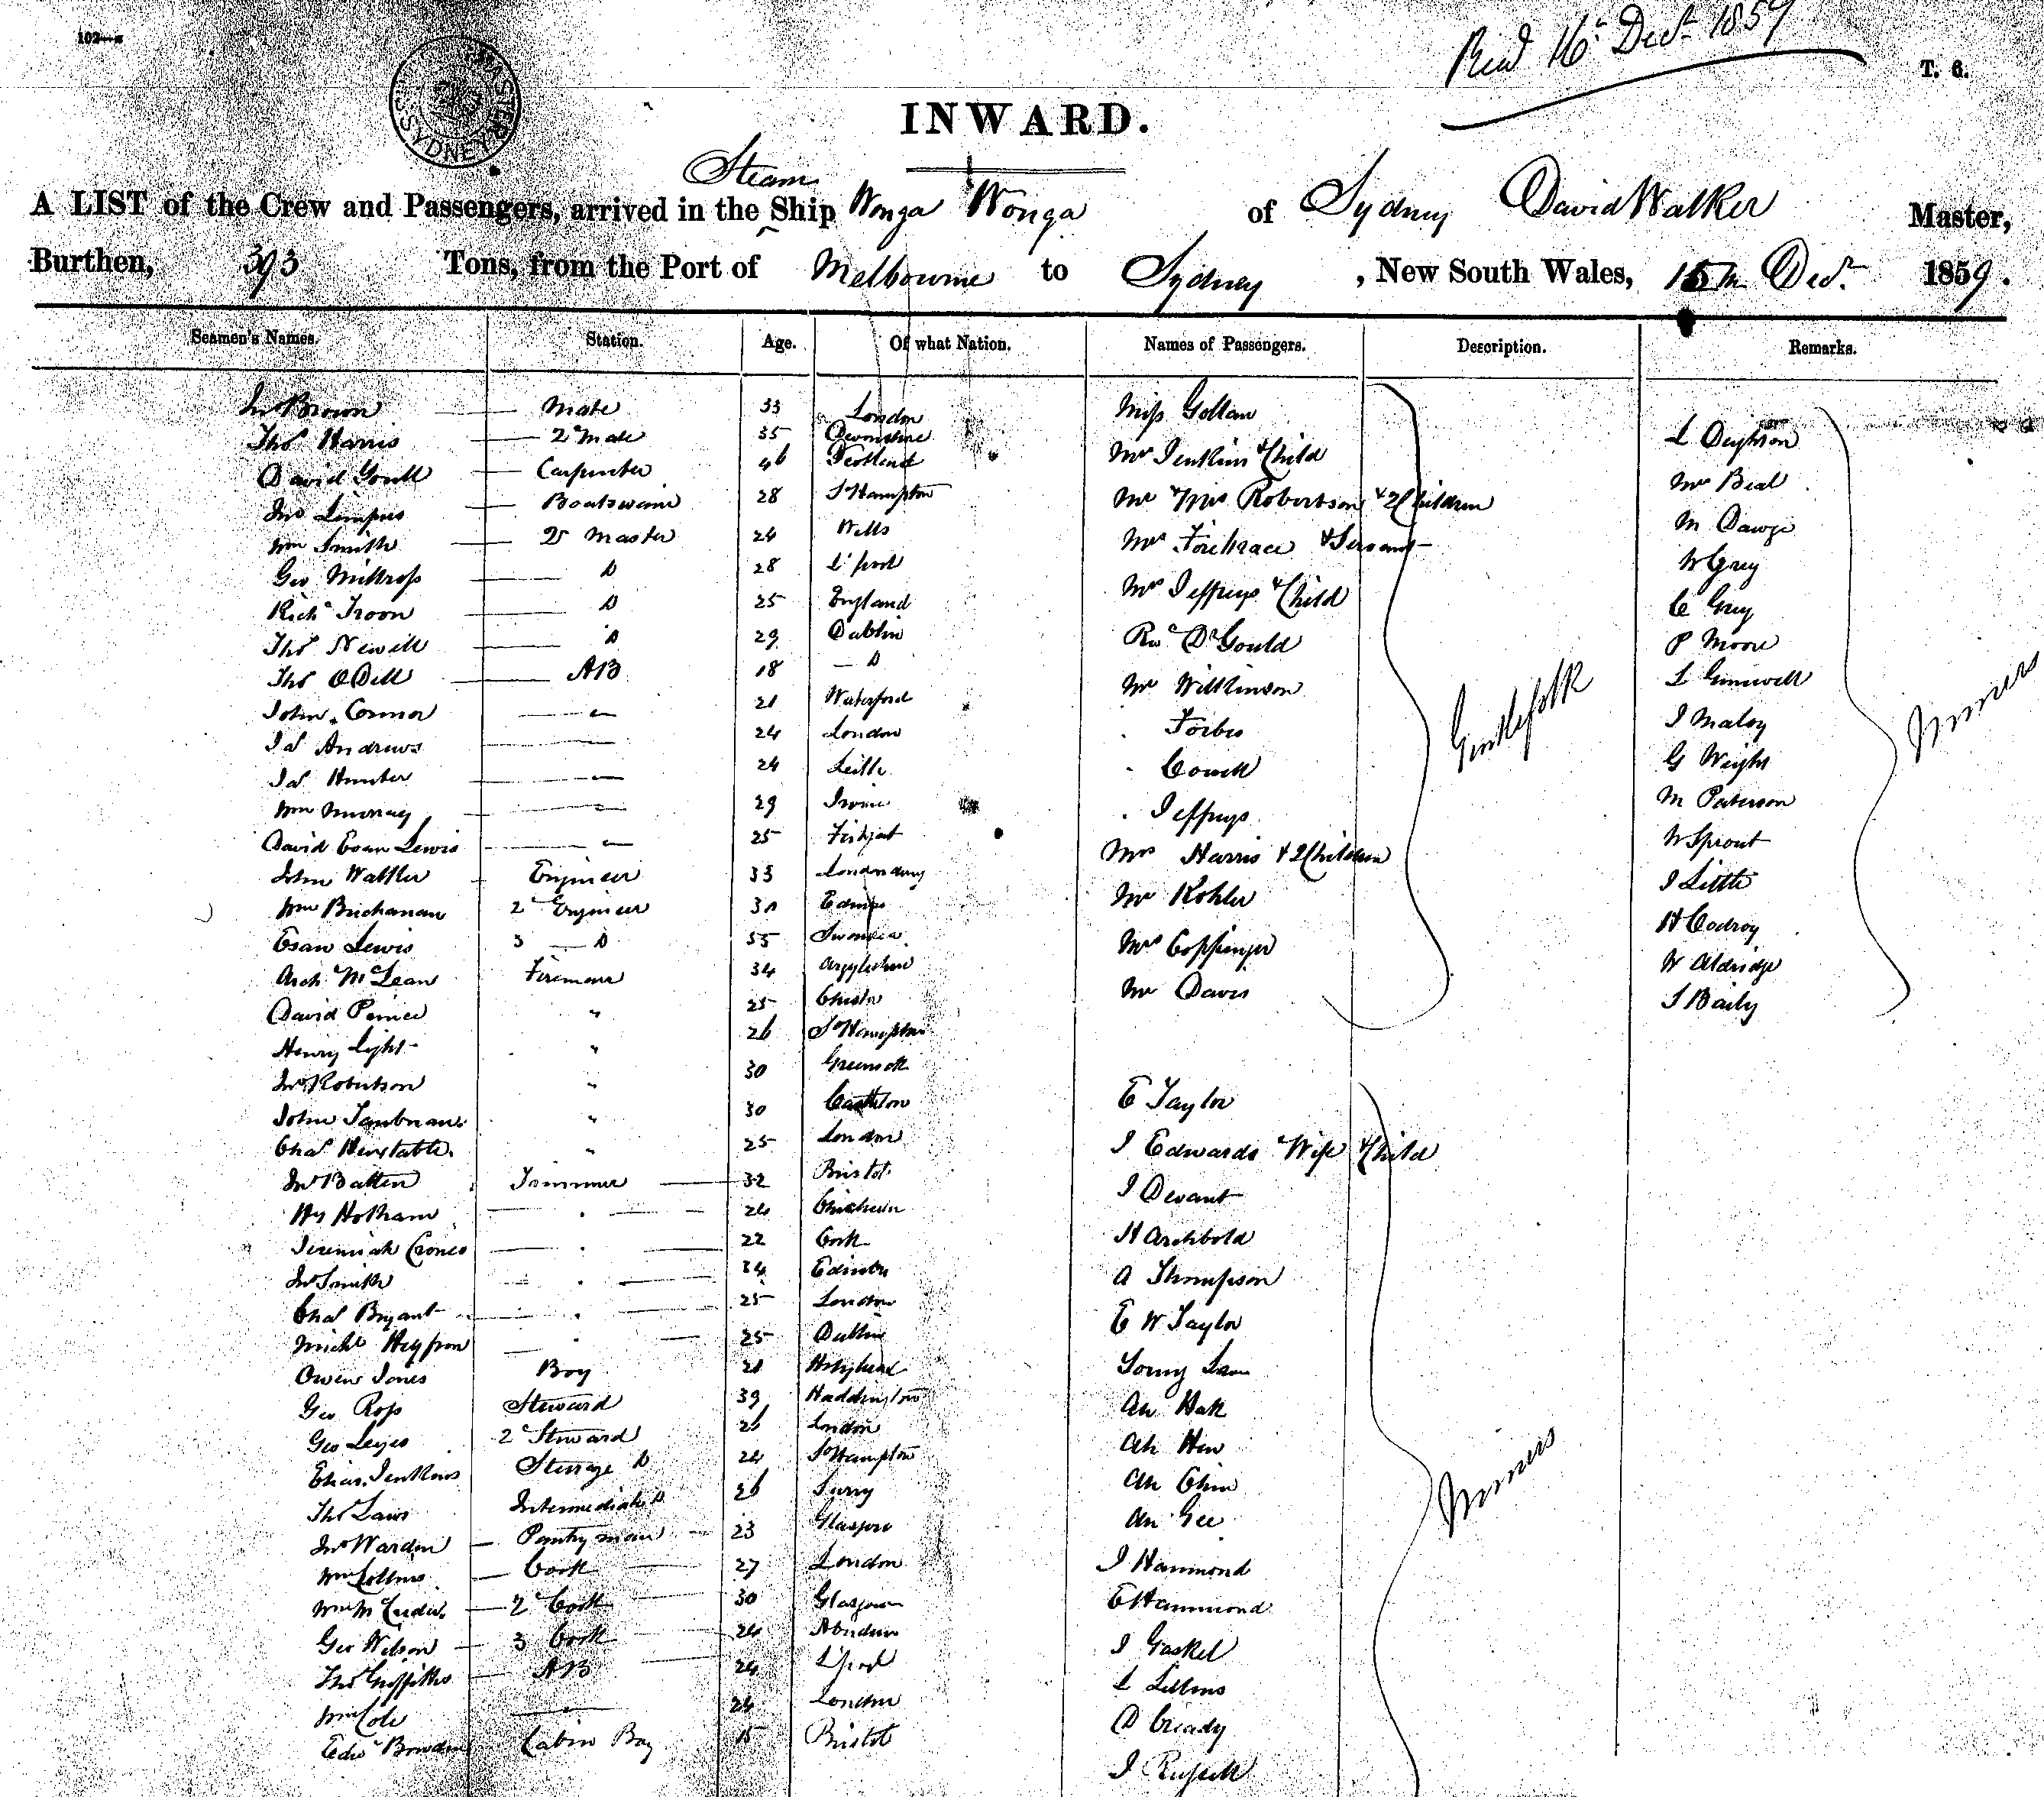 102—a
SYDNEY
Recd 16th Decr 1859
T. 6.
INWARD.
Steam
A LIST of the Crew and Passengers, arrived in the Ship Wonga Wonga of Sydney David Walker Master,
Burthen, 393 Tons, from the Port of Melbourne to Sydney, New South Wales, 15th Decr 1859.
Seamen's Names. Station. Age. Of what Nation. Names of Passengers. Description. Remarks.
Jno Brown Mate 33 London
Thos Harris 2d Mate 35 Devonshire
David Carpenter 46 Scotland
Jno Boatswain 28 SoHampton
Wm Smith Qr Master 24 Wells
Geo Do 28 L'pool
Richd Troon Do 25 England
Thos Newell Do 29 Dublin
Thos ODell AB 18 Do
John Connor 21 Waterford
Jas Andrews 24 London
Jas Hunter 24 Leith
Wm Murray 29 Irvine
David Evan Lewis 25
John Walker Engineer 33 Londonderry
Wm Buchanan 2d Engineer
Evan Lewis 3 Do 35 Swansea
Arch McLean Fireman 34 Argyleshire
David " 25 Chester
Henry Light " 26 SoHampton
Jno Robertson " 30 Greenock
John " 30
Chas " 25 London
Jno Batten Trimmer 32 Bristol
Hy Hotham 24
Jeremiah 22 Cork
Jno Smith 34 Edinbro
Chas Bryant 25 London
Michl 25 Dublin
Owen Jones Boy 21 Holyhead
Geo Ross Steward 39 Haddington
Geo 2d Steward 26 London
Jenkins Steerage Do 24 SoHampton
Thos Laws Intermediate Do 26 Surry
Jno Warden Pantry man 23 Glasgow
Wm Collins Cook 27 London
Wm 2d Cook 30 Glasgow
Geo Wilson 3 Cook 24 Aberdeen
Thos Griffiths AB 24 L'pool
Wm Cole 24 London
Edwd Bowden Cabin Boy 15 Bristol
Miss Gollan
Mr Jenkins & Child
Mr & Mrs Robertson & 2 Children
Mrs Firebrace & Servant
Mrs Jeffreys & Child
Revd Dr Gould
Mr Wilkinson
Forbes
Cowell
Jeffreys
Mrs Harris & 2 Children
Mr Kohler
Mrs Coppinger
Mr Davis
Gentlefolk
E Taylor
J Edwards Wife & Child
J Devant
H Archbold
A Thompson
E W Taylor
Ah Hak
Ah Hew
Ah Chin
Ah Gee
J Hammond
E Hammond
J Gaskel
D Cready
J Russell
Miners
L Deighton
Mr Beal
W Grey
C Grey
P Moore
J Maloy
G Weight
M Paterson
W Sprout
J Little
H Codroy
W Aldridge
S Baily
Miners